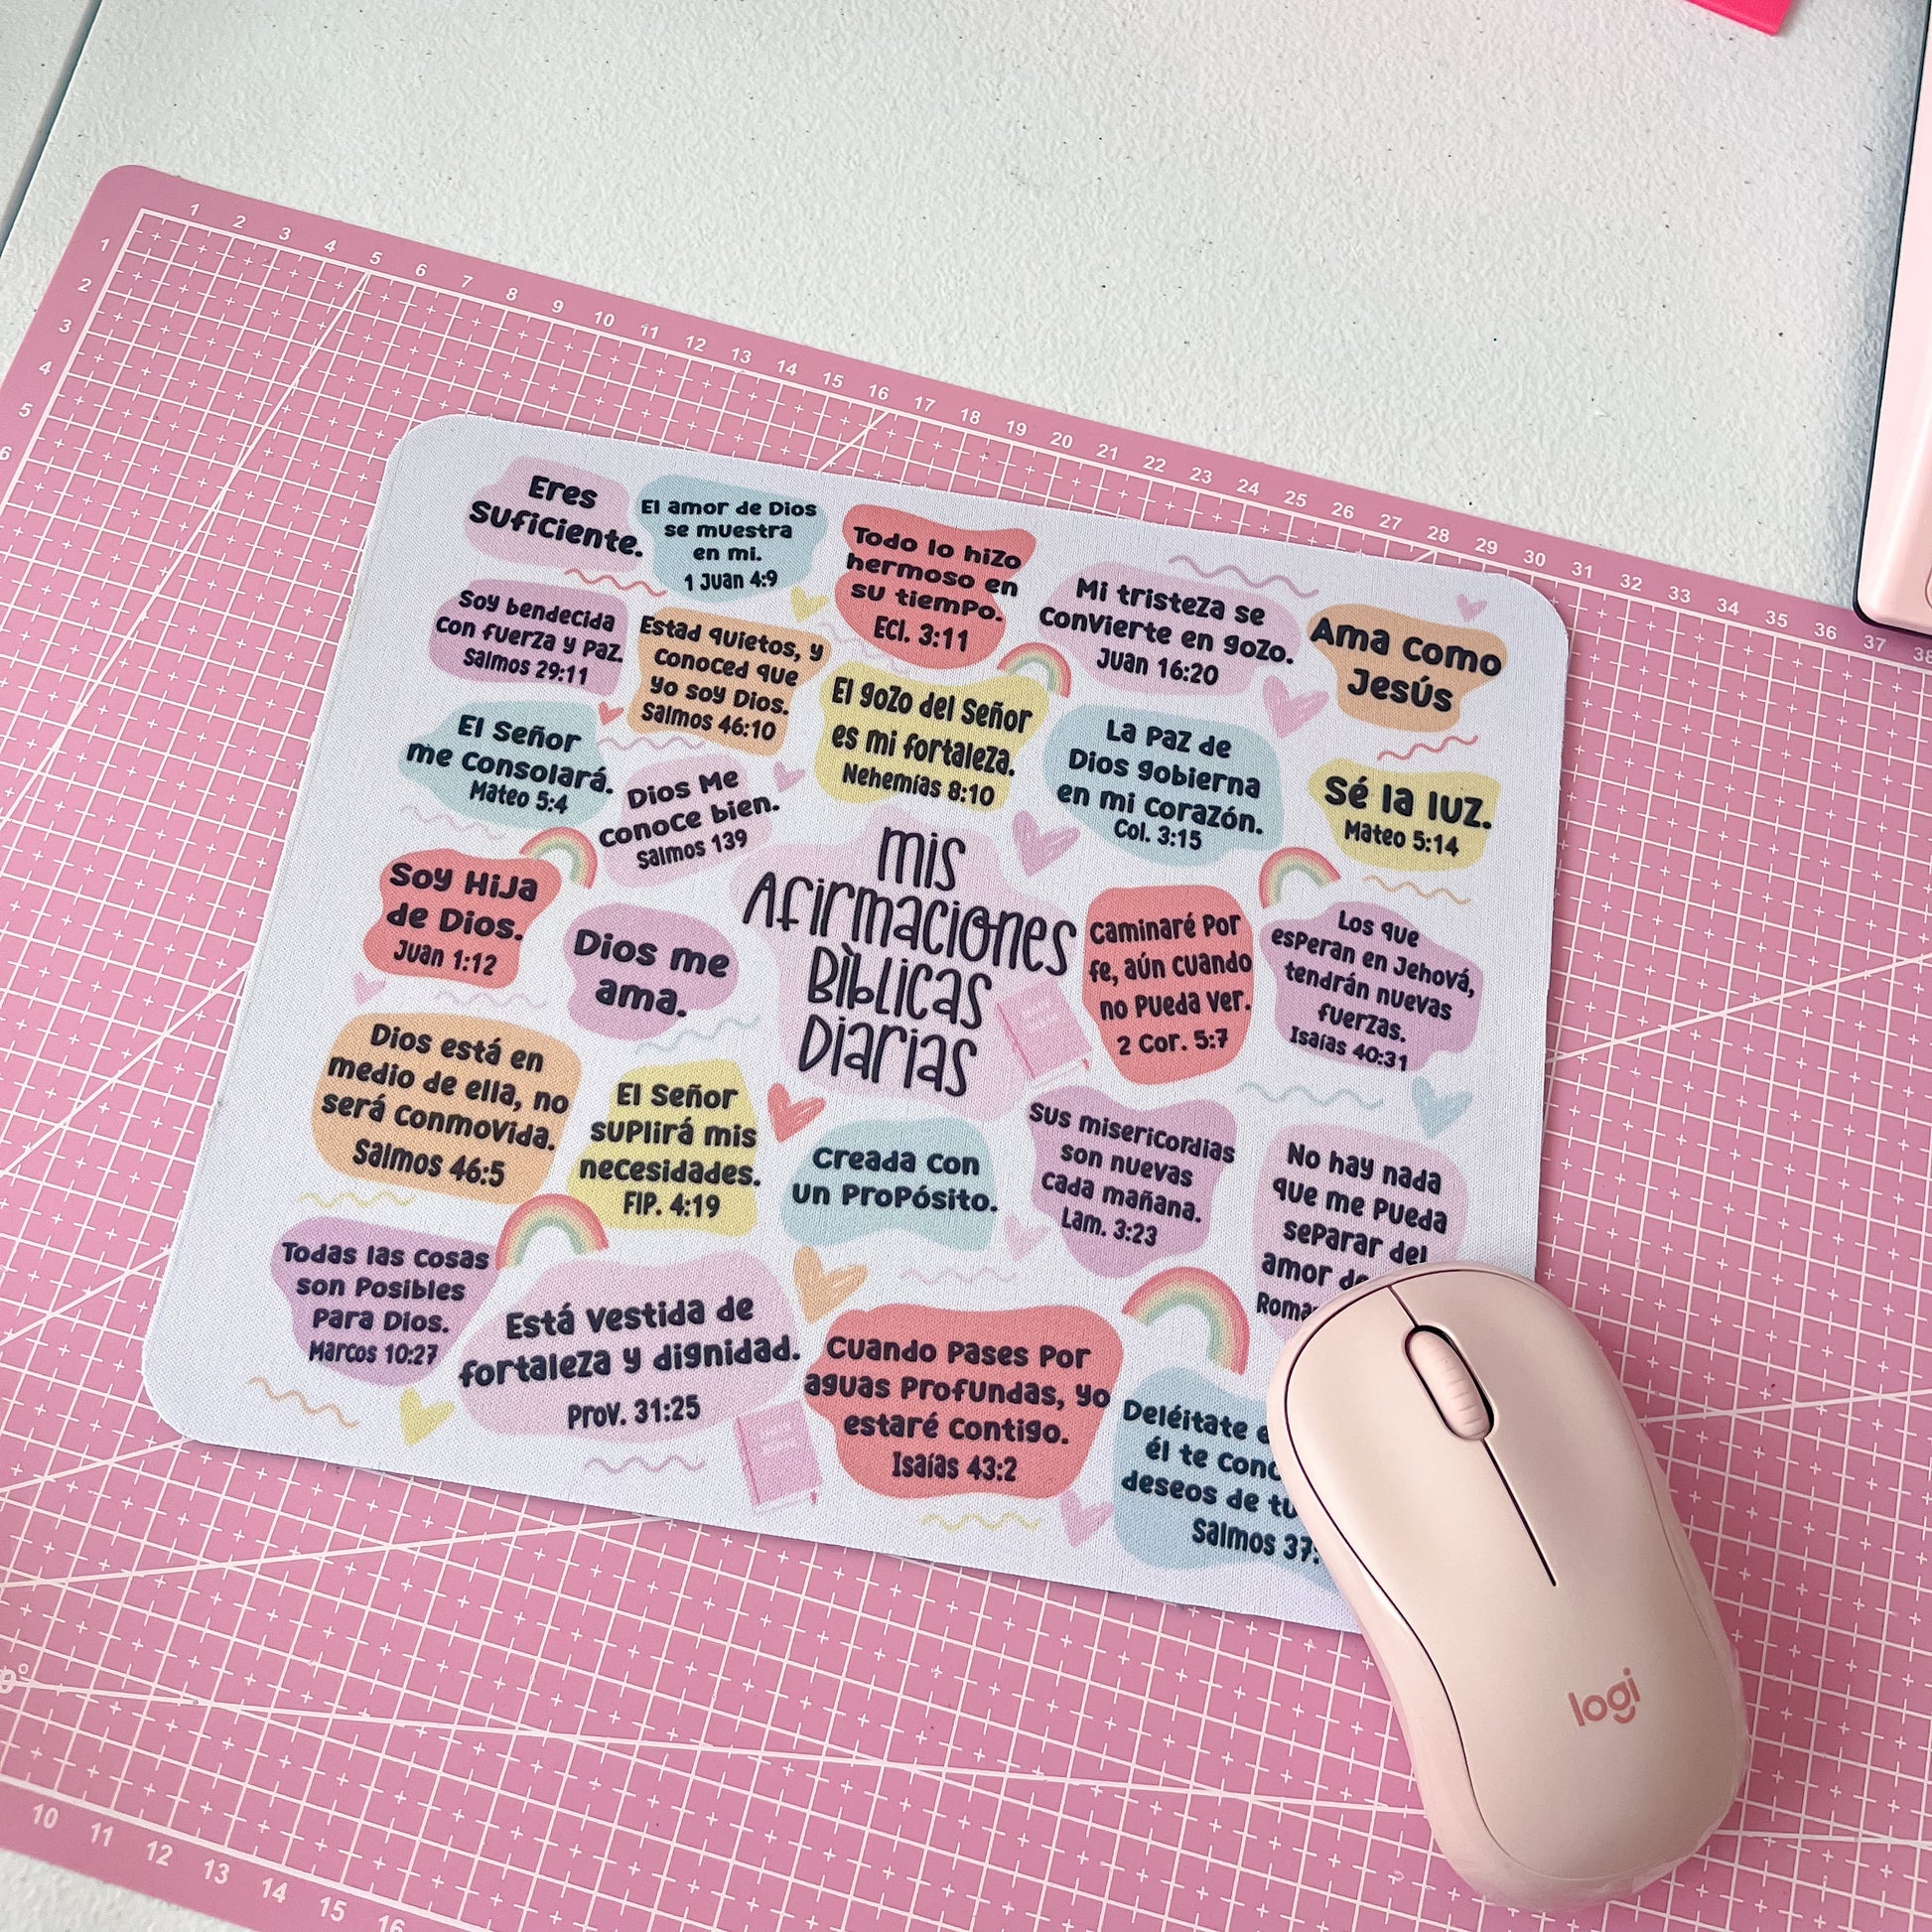 Eres
Suficiente.
El amor de Dios
se muestra
en mi.
1 Juan 4:9
Todo lo hizo
hermoso en
su tiempo.
Ecl. 3:11
Mi tristeza se
convierte en gozo.
Juan 16:20
Ama como
Jesús
Soy bendecida
con fuerza y paz.
Salmos 29:11
Estad quietos, y
conoced que
yo soy Dios.
Salmos 46:10
El gozo del Señor
es mi fortaleza.
Nehemías 8:10
La paz de
Dios gobierna
en mi corazón.
Col. 3:15
Sé la luz.
Mateo 5:14
El Señor
me consolará.
Mateo 5:4
Dios Me
conoce bien.
Salmos 139
mis
Afirmaciones
Bìblicas
Diarias
Soy Hija
de Dios.
Juan 1:12
Dios me
ama.
Caminaré por
fe, aún cuando
no pueda ver.
2 Cor. 5:7
Los que
esperan en Jehová,
tendrán nuevas
fuerzas.
Isaías 40:31
Dios está en
medio de ella, no
será conmovida.
Salmos 46:5
El Señor
suplirá mis
necesidades.
FlP. 4:19
Creada con
un propósito.
Sus misericordias
son nuevas
cada mañana.
Lam. 3:23
No hay nada
que me pueda
separar del
amor
Todas las cosas
son posibles
para Dios.
Marcos 10:27
Está vestida de
fortaleza y dignidad.
Prov. 31:25
Cuando pases por
aguas profundas, yo
estaré contigo.
Isaías 43:2
Deléitate
él te
deseos de
Salmos 37:
logi
1 2 3 4 5 6 7 8 9 10 11 12 13 14 15 16 17 18 19 20 21 22 23 24 25 26 27 28 29 30 31 32 33 34 35 36 37 38
1
2
3
4
5
6
10 11 12 13 14 15 16